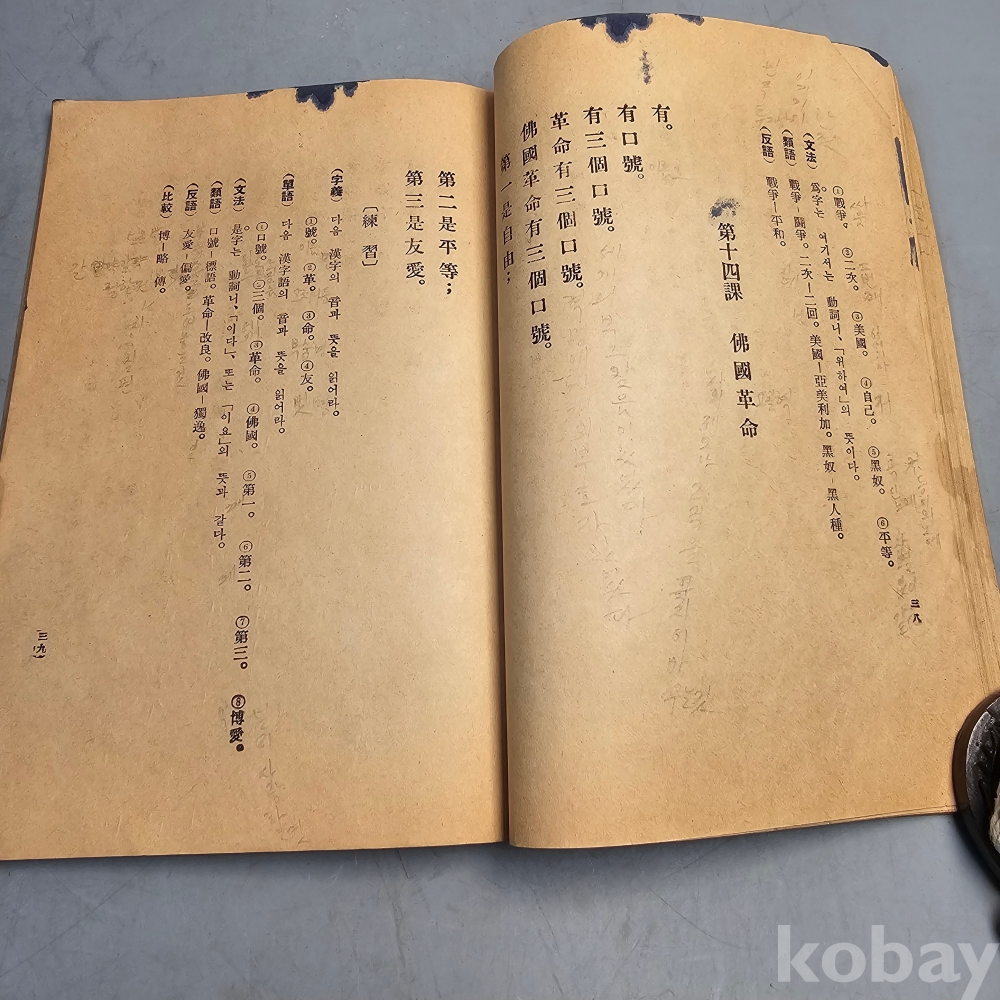 ①戰爭。 ②二次。 ③美國。 ④自己。 ⑤黑奴。 ⑥平等。
(文法) 爲字는 여기서는 動詞니、「위하여」의 뜻이다。
(類語) 戰爭—鬪爭。二次—二回。美國—亞美利加。黑奴—黑人種。
(反語) 戰爭—平和。
第十四課 佛國革命
有。
有口號。
有三個口號。
革命有三個口號。
佛國革命有三個口號。
第一是自由；
三八
第二是平等；
第三是友愛。
〔練習〕
(字義) 다음 漢字의 音과 뜻을 읽어라。
①號。②革。③命。④友。
(單語) 다음 漢字語의 音과 뜻을 읽어라。
①口號。②三個。 ③革命。 ④佛國。 ⑤第一。 ⑥第二。 ⑦第三。 ⑧博愛。
(文法) 是字는 動詞니、「이다」、또는 「이요」의 뜻과 같다。
(類語) 口號—標語。革命—改良。佛國—獨逸。
(反語) 友愛—偏愛。
(比較) 博—略 傳。
三九
kobay